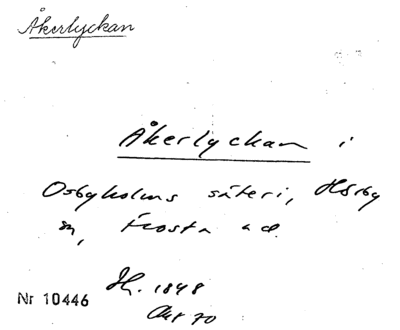 Åkerlyckan
Åkerlyckan i
Osbyholms säteri, Hörby
sn, Frosta hd.
Nr 10446
H. 1848
Akt 70